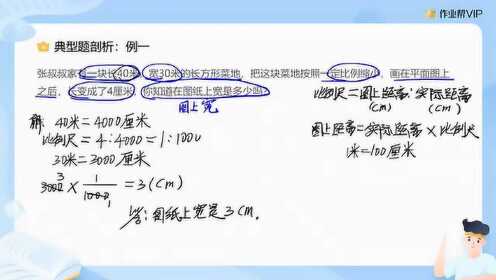 作业帮VIP
典型题剖析：例一
张叔叔家有一块长40米，宽30米的长方形菜地，把这块菜地按照一定比例缩小，画在平面图上
之后，长变成了4厘米，你知道在图纸上宽是多少吗？
图上宽
解：40米=4000厘米
比例尺=4:4000=1:1000
30米=3000厘米
3000×1/1000=3(cm)
答：图纸上宽是3cm.
比例尺=图上距离:实际距离
(cm) (cm)
图上距离=实际距离×比例尺
1米=100厘米